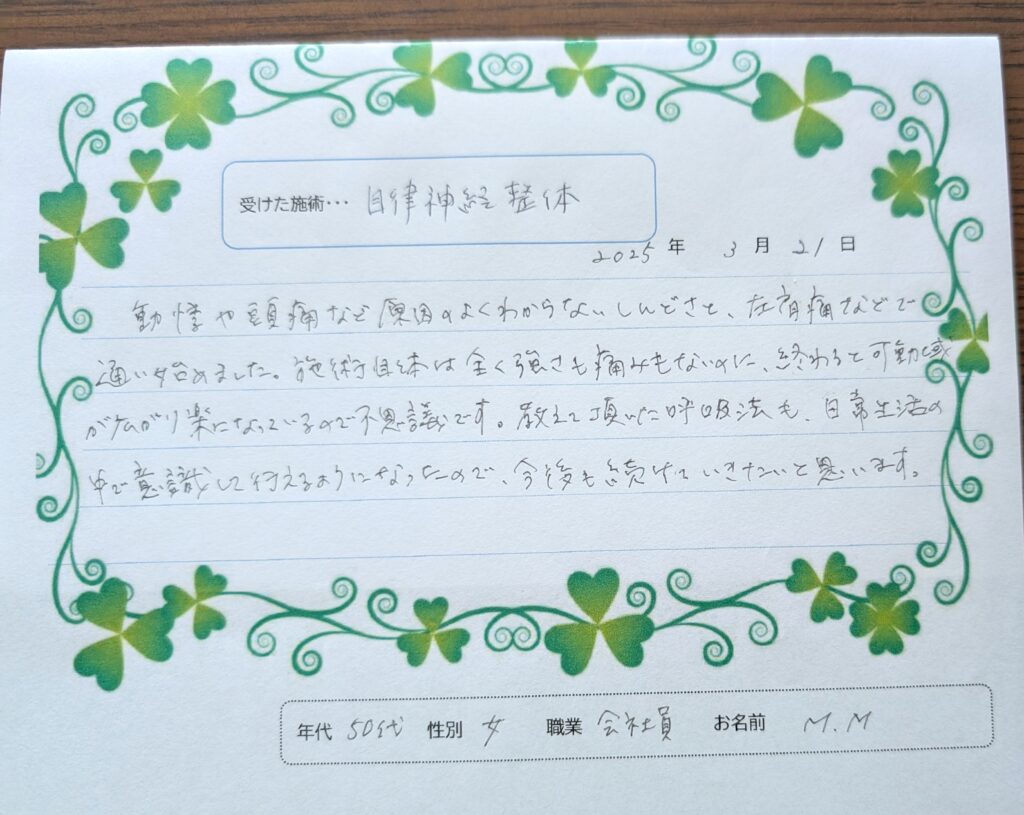 受けた施術･･･ 自律神経整体
2025 年 3 月 21 日
動悸や頭痛など原因のよくわからないしんどさと、左肩痛などで
通い始めました。施術自体は全く強さも痛みもないのに、終わると可動域
が広がり楽になっているので不思議です。教えて頂いた呼吸法も、日常生活の
中で意識して行えるようになったので、今後も続けていきたいと思います。
年代 50代 性別 女 職業 会社員 お名前 M.M